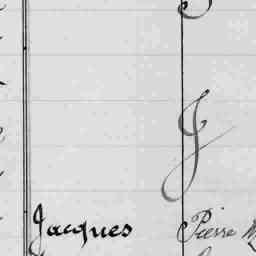 J
Jacques Pierre